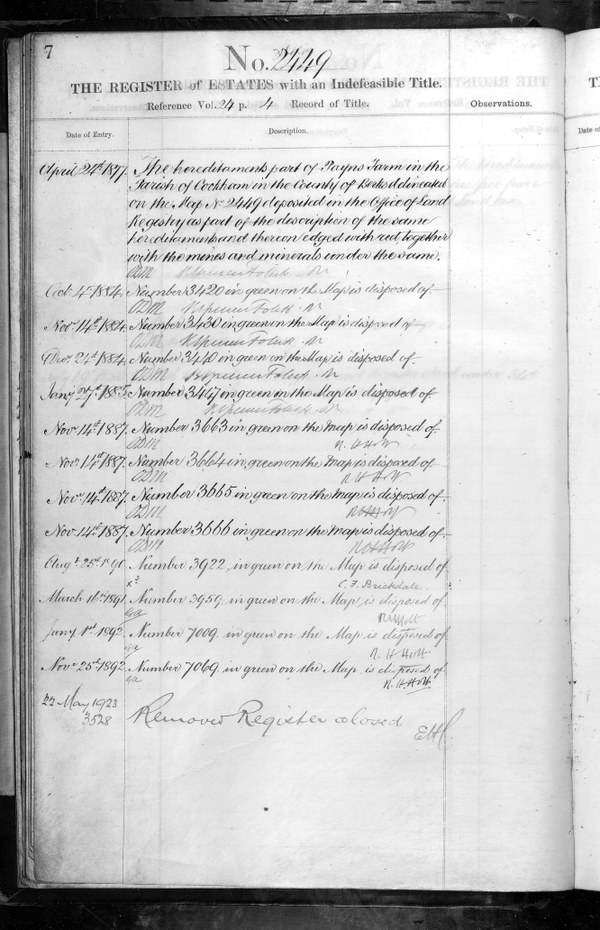 7
No. 2449
THE REGISTER of ESTATES with an Indefeasible Title.
Reference Vol. 24 p. 4 Record of Title.
Observations.
Date of Entry.
Description.
April 24th 1877. The hereditaments part of Payns Farm in the
Parish of Cookham in the County of Berks delineated
on the Map No. 2449 deposited in the Office of Land
Registry as part of the description of the same
hereditaments and thereon edged with red together
with the mines and minerals under the same.
Oct. 4th 1884. Number 3420 in green on the Map is disposed of
Nov. 14th 1884. Number 3430 in green on the Map is disposed of
Dec. 24th 1884. Number 3440 in green on the Map is disposed of
Jany 27th 1885. Number 3447 in green on the Map is disposed of
Nov. 14th 1887. Number 3663 in green on the Map is disposed of
R. H. Holt
Nov. 14th 1887. Number 3664 in green on the Map is disposed of
R H Holt
Nov. 14th 1887. Number 3665 in green on the Map is disposed of
R H Holt
Nov. 14th 1887. Number 3666 in green on the Map is disposed of
R H Holt
Augt 25th 1890. Number 3922 in green on the Map is disposed of
C. F. Brickdale
March 16th 1891. Number 3959 in green on the Map is disposed of
R H Holt
Jany 1st 1892. Number 7009 in green on the Map is disposed of
R. H. Holt
Nov. 25th 1892. Number 7069 in green on the Map is disposed of
R. H. Holt
22 May 1923
3528
Removed Register closed